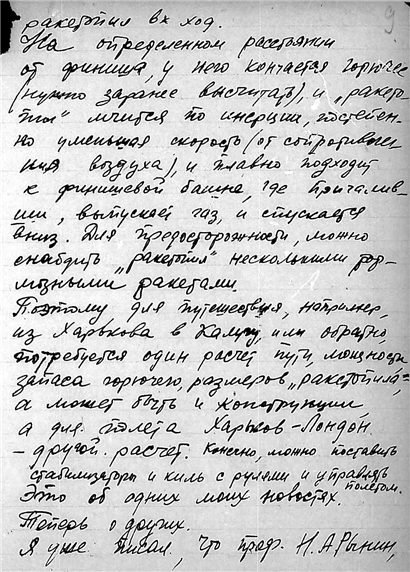 9
ракетопил в ход.
На определенном расстоянии
от финиша, у него кончается горючее
(нужно заранее высчитать), и „ракето-
пил" мчится по инерции, постепен-
но уменьшая скорость (от сопротивле-
ния воздуха), и плавно подходит
к финишевой башне, где причалив-
ши, выпускает газ, и спускается
вниз. Для предосторожности, можно
снабдить „ракетопил" несколькими тор-
мозными ракетами.
Поэтому, для путешествия, например,
из Харькова в Калугу, или обратно,
потребуется один расчет пути, мощности
запаса горючего, размеров „ракетопила",=
а может быть и конструкции,
а для полета Харьков-Лондон.
- другой. расчет. Конечно, можно поставить
стабилизаторы и киль с рулями и управлять
полетом.
Это об одних моих новостях.
Теперь о других.
Я уже писал, что проф. Н.А Рынин,